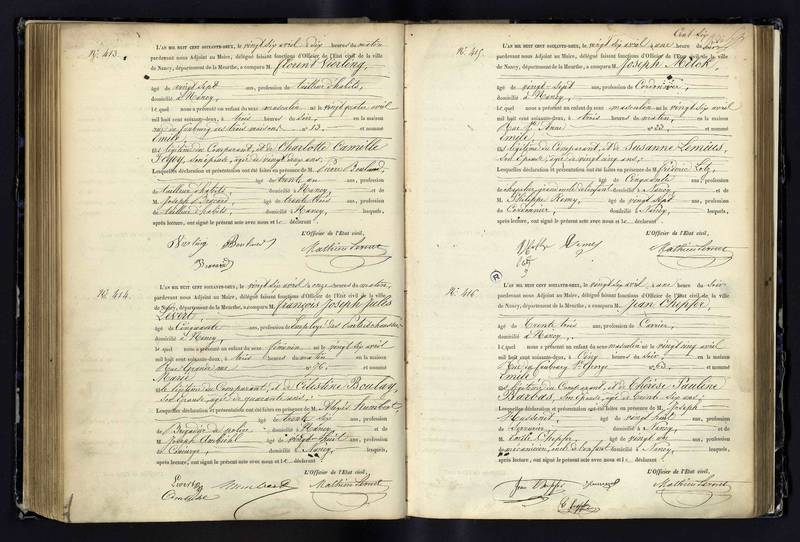 N.° 413.
L'AN MIL HUIT CENT SOIXANTE-DEUX, le vingt six avril à dix heures du matin
pardevant nous Adjoint au Maire, délégué faisant fonctions d'Officier de l'Etat civil de la ville
de Nancy, département de la Meurthe, a comparu M. Florent Vierling,
âgé de vingt sept ans, profession de tailleur d'habits,
domicilié à Nancy,
Lequel nous a présenté un enfant du sexe masculin né le vingt quatre avril
mil huit cent soixante-deux, à trois heures du soir, en la maison
rue du faubourg des trois maisons n.° 53 et nommé
Emile
fils légitime du Comparant, et de Charlotte Camille
son épouse, âgée de vingt deux ans.
Lesquelles déclaration et présentation ont été faites en présence de M. Pierre
âgé de trente un ans, profession
de tailleur d'habits, domicilié à Nancy, et de
M. Joseph âgé de trente trois ans, profession
de tailleur d'habits, domicilié à Nancy, lesquels,
après lecture, ont signé le présent acte avec nous et le déclarant
L'Officier de l'Etat civil,
N.° 414.
L'AN MIL HUIT CENT SOIXANTE-DEUX, le vingt six avril à onze heures du matin,
pardevant nous Adjoint au Maire, délégué faisant fonctions d'Officier de l'Etat civil de la ville
de Nancy, département de la Meurthe, a comparu M. François Joseph Jules
Levert
âgé de Cinquante ans, profession de Employé des Ponts et chaussées
domicilié à Nancy,
Lequel nous a présenté un enfant du sexe féminin né le vingt six avril
mil huit cent soixante-deux, à trois heures du matin en la maison
Rue n.° 76 et nommé
Marie
fille légitime du Comparant, et de Célestine Boulay,
son épouse, âgée de quarante ans;
Lesquelles déclaration et présentation ont été faites en présence de M. Alexis Humbert
âgé de trente six ans, profession
de Brigadier de police, domicilié à Nancy et de
M. Joseph âgé de vingt huit ans, profession
de domicilié à Nancy, lesquels,
après lecture, ont signé le présent acte avec nous et le déclarant
L'Officier de l'Etat civil,
Cent Six
N.° 415.
L'AN MIL HUIT CENT SOIXANTE-DEUX, le vingt six avril à une heure du soir
pardevant nous Adjoint au Maire, délégué faisant fonctions d'Officier de l'Etat civil de la ville
de Nancy, département de la Meurthe, a comparu M. Joseph
âgé de vingt sept ans, profession de Cordonnier,
domicilié à Nancy,
Lequel nous a présenté un enfant du sexe masculin né le vingt six avril
mil huit cent soixante-deux, à trois heures du matin, en la maison
Rue Ste Anne n.° 23 et nommé
Emile
fils légitime du Comparant, et de Susanne Lenius,
son épouse, âgée de vingt cinq ans;
Lesquelles déclaration et présentation ont été faites en présence de M. Frédéric
âgé de Cinquante ans, profession
de domicilié à Nancy et de
M. Philippe Remy, âgé de vingt sept ans, profession
de Cordonnier, domicilié à Nancy, lesquels,
après lecture, ont signé le présent acte avec nous et le déclarant
L'Officier de l'Etat civil,
R
N.° 416
L'AN MIL HUIT CENT SOIXANTE-DEUX, le vingt six avril à une heure du soir
pardevant nous Adjoint au Maire, délégué faisant fonctions d'Officier de l'Etat civil de la ville
de Nancy, département de la Meurthe, a comparu M. Jean Chipfre,
âgé de Trente trois ans, profession de Carrier,
domicilié à Nancy,
Lequel nous a présenté un enfant du sexe masculin né le vingt cinq avril
mil huit cent soixante-deux, à Cinq heures du soir en la maison
Rue du faubourg St George n.° 63 et nommé
Emile
fils légitime du Comparant, et de Thérèse Pauline
Barbas, son épouse, âgée de trente six ans;
Lesquelles déclaration et présentation ont été faites en présence de M. Joseph
âgé de vingt huit ans, profession
de Serrurier, domicilié à Nancy, et de
M. Emile Chipfre âgé de vingt un ans, profession
de mécanicien, domicilié à Nancy, lesquels,
après lecture, ont signé le présent acte avec nous et le déclarant
L'Officier de l'Etat civil,